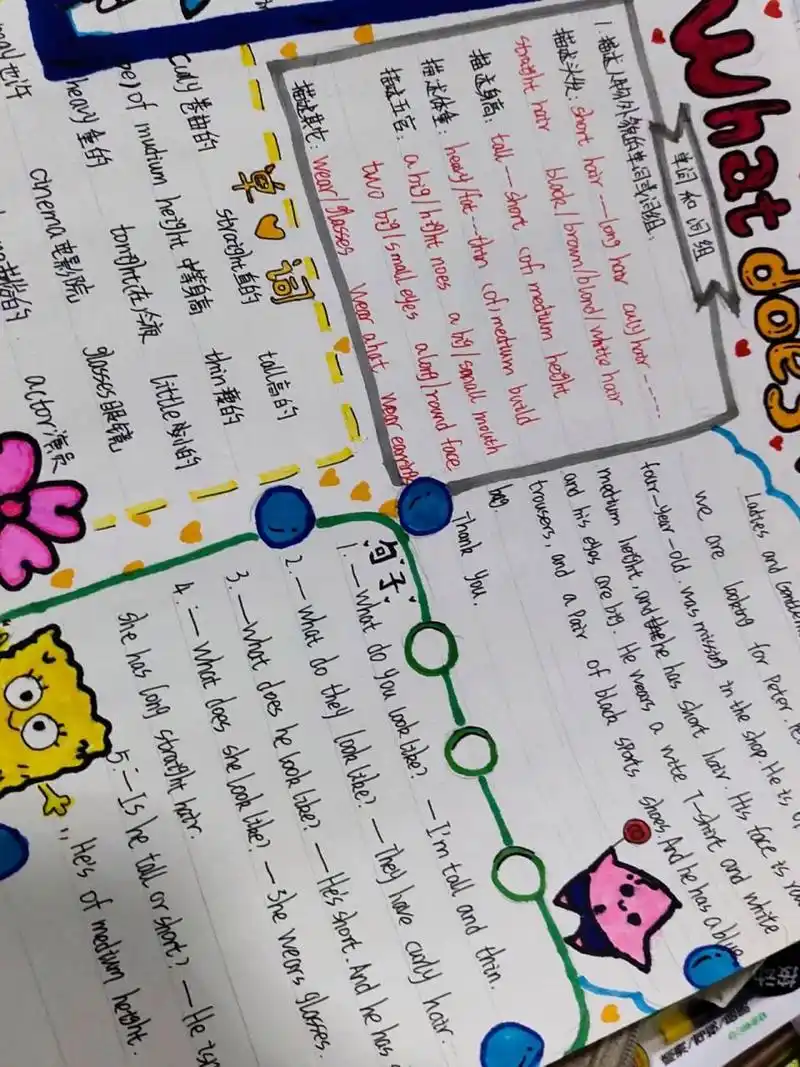 What does
单词和词组
1.描述人物外貌的单词或词组.
描述头发: short hair --- long hair curly hair -----
straight hair black/brown/blond/white hair
描述身高: tall --- short (of) medium height
描述体重: heavy/fat --- thin (of) medium build
描述五官: a big/hight noes a big/small mouth
two big/small eyes a long/round face
描述其它: wear/glasses wear a hat wear earrings
单词
curly 卷曲的 straight 直的 tall 高的
(be) of mudium height 中等身高 thin 瘦的
heavy 重的 tonight 在今夜 little 小的
cinema 电影院 glasses 眼镜
actor 演员
may 也许
Ladies and
we are looking for Peter.
four-year-old. was missing in the shop. He is of
medium height, and he has short hair. His face is
and his eyes are big. He wears a wite T-shirt and white
trousers, and a pair of black sports shoes. And he has a blue
bag.
Thank you.
句子
1. — What do you look like? — I'm tall and thin.
2. — what do they look like? — They have curly hair.
3. — what does he look like? — He's short. And he has
4. — What does she look like? — She wears glasses.
She has long straight hair.
5. — Is he tall or short? — He isn
He's of medium height.